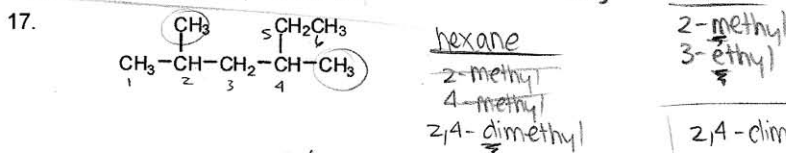 17.
CH₃
5 CH₂CH₃
6
CH₃-CH-CH₂-CH-CH₃
1 2 3 4
hexane
2-methyl
4-methyl
2,4-dimethyl
2-methyl
3-ethyl
2,4-dim